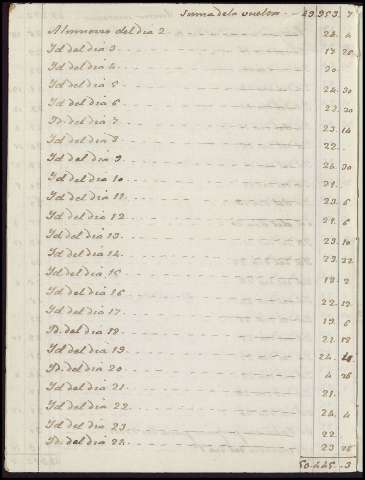 Suma de la vuelta -- 49953. 7
Id. del dia 3 17. 25
Id. del dia 4 20.
Id. del dia 5 24. 30
Id. del dia 6 22. 20
Id. del dia 7 23. 14
Id. del dia 8 22.
Id. del dia 9 24. 30
Id. del dia 10 21.
Id. del dia 11 23. 6
Id. del dia 12 21. 6
Id. del dia 13 23. 10
Id. del dia 14 23. 22
Id. del dia 15 19. 2
Id. del dia 16 22. 12
Id. del dia 17 19. 6
Id. del dia 18 21. 18
Id. del dia 19 24.
Id. del dia 20 4 26
Id. del dia 21 21.
Id. del dia 22 24. 4
Id. del dia 23 22.
Id. del dia 23
50.445. -3